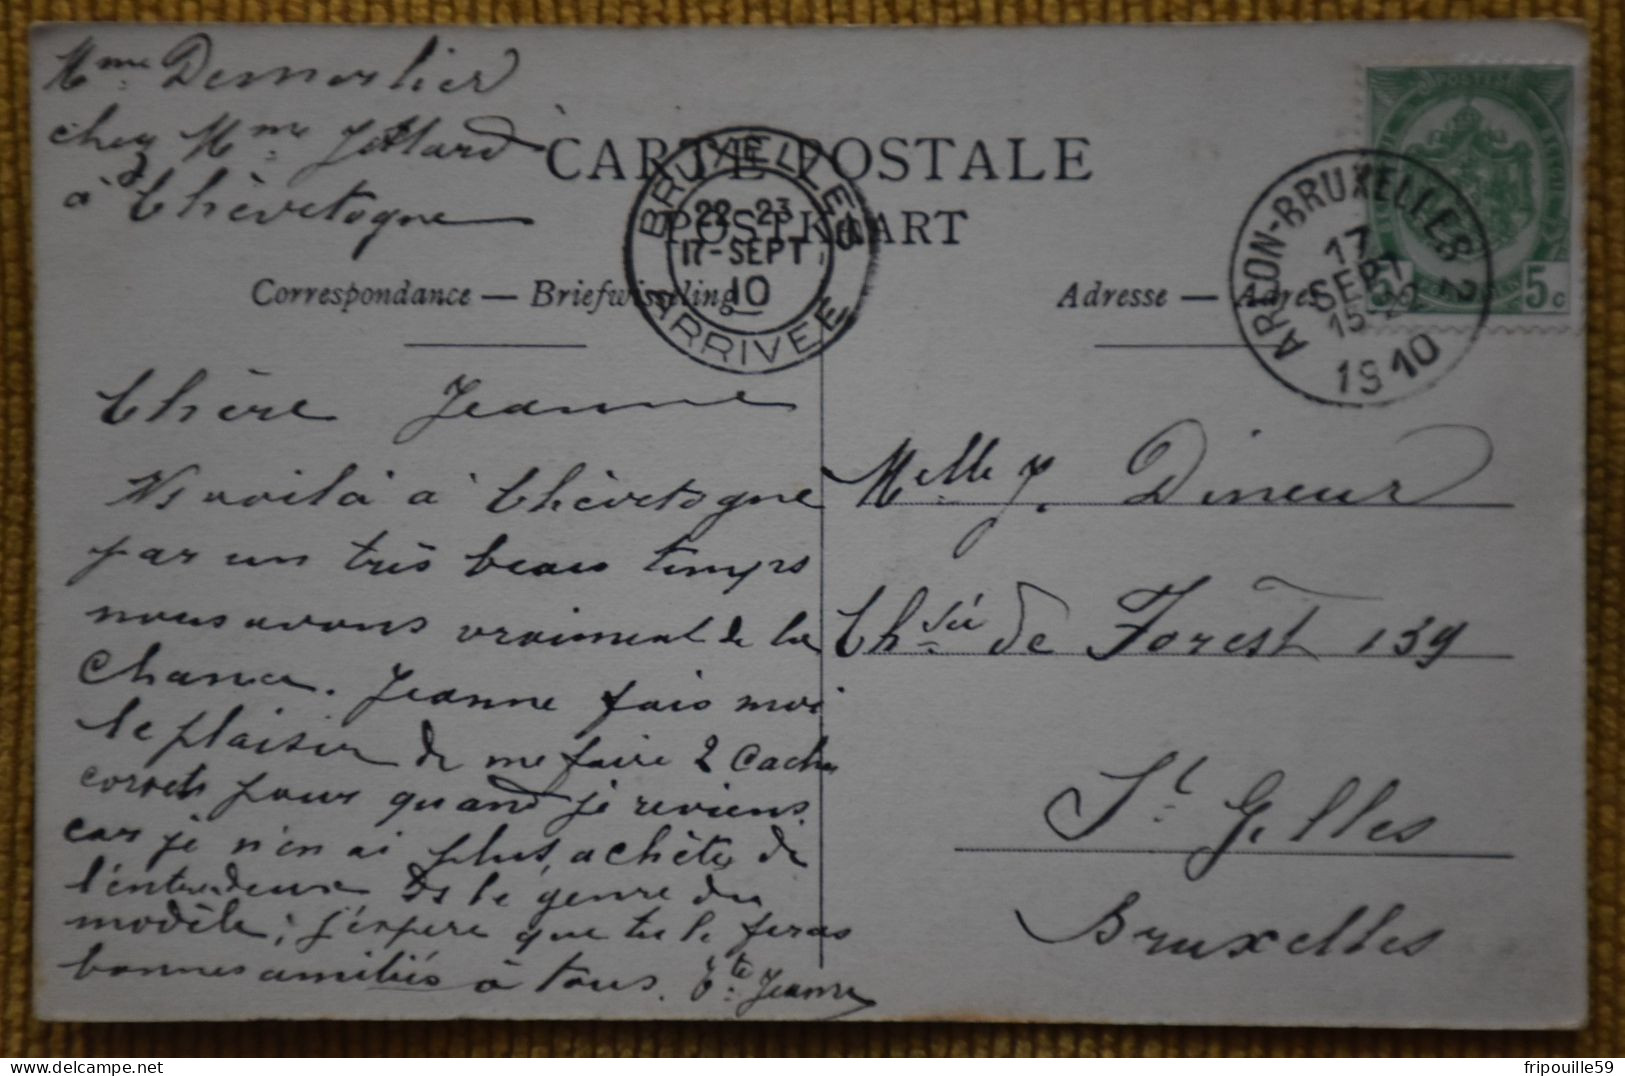 Mme Demarlier
chez Mme Jottard
à Chèvetogne
CARTE POSTALE
POSTKAART
Correspondance — Briefwisseling
Adresse — Adres
BRUXELLES
22-23
17-SEPT
10
ARRIVEE
ARLON-BRUXELLES 2
17
SEPT
15-22
1910
POSTES
5c
Chère Jeanne
Ns voilà à Chèvetogne
par un très beau temps
nous avons vraiment de la
chance. Jeanne fais moi
le plaisir de me faire 2 cache
corsets pour quand je reviens
car je n'en ai plus, achète de
l'entredeux ds le genre du
modèle, j'espère que tu le feras
bonnes amitiés à tous. Jeanne
Melle J. Dineur
Chsée de Forest 139
St Gilles
Bruxelles
fripouille59